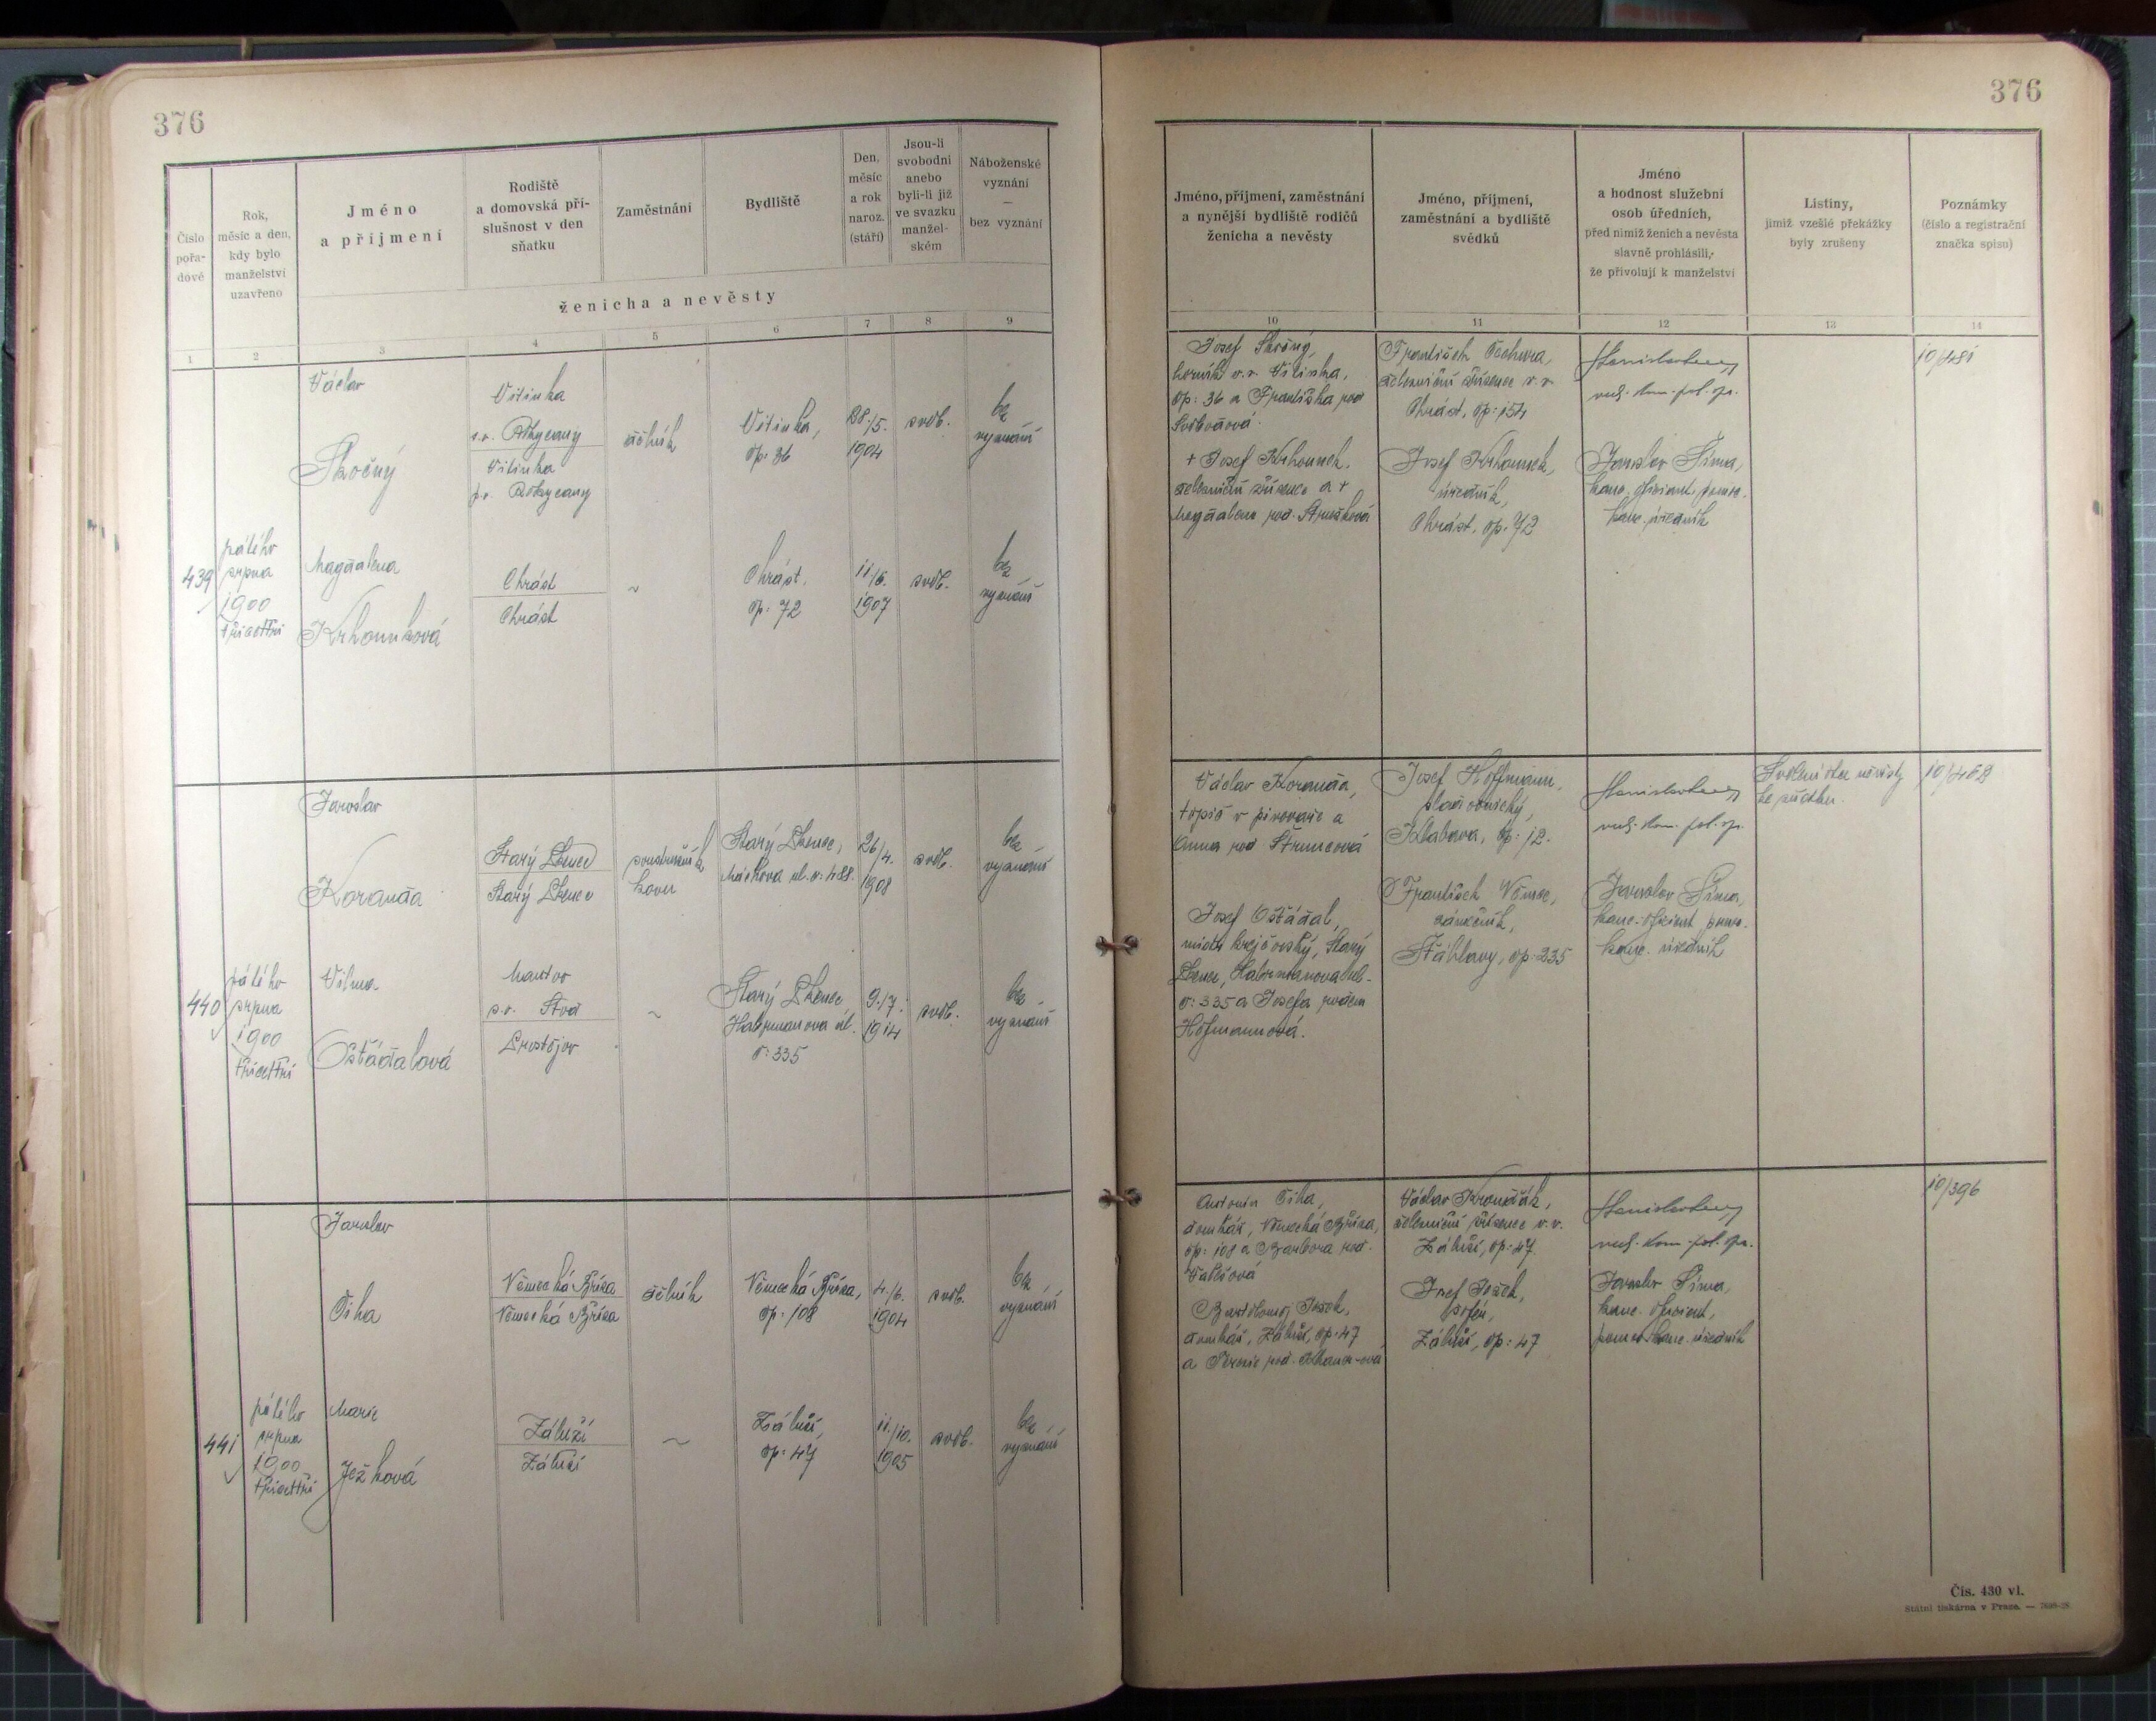 376
376
Číslo pořadové
Rok, měsíc a den, kdy bylo manželství uzavřeno
Jméno a příjmení
Rodiště a domovská příslušnost v den sňatku
Zaměstnání
Bydliště
Den, měsíc a rok naroz. (stáří)
Jsou-li svobodni anebo byli-li již ve svazku manželském
Náboženské vyznání — bez vyznání
ženicha a nevěsty
1 2 3 4 5 6 7 8 9
Jméno, příjmení, zaměstnání a nynější bydliště rodičů ženicha a nevěsty
Jméno, příjmení, zaměstnání a bydliště svědků
Jméno a hodnost služební osob úředních, před nimiž ženich a nevěsta slavně prohlásili, že přivolují k manželství
Listiny, jimiž vzešlé překážky byly zrušeny
Poznámky (číslo a registrační značka spisu)
10 11 12 13 14
439
pátého
srpna
1900
třicettři
Václav
Skočný
Vitinka
Vitinka
dělník
Vitinka,
čp: 36
28./5.
1904
svob.
bez
vyznání
Magdalena
Krhounková
Chrást
Chrást
~
Chrást.
čp: 72
1907
svob.
bez
vyznání
Josef Skočný,
horník v.v. Vitinka,
čp: 36 a Františka rod
+ Josef Krhounek,
železniční zřízenec a +
Magdalena rod.
František
železniční zřízenec v.v.
Chrást, čp: 154
Josef Krhounek,
úředník,
Chrást, čp. 72
rad. kom. pol. spr.
Jaroslav Šíma,
kanc. oficiant, pomoc.
kanc. úředník
10/481
440
pátého
srpna
1900
třicettři
Jaroslav
Koranda
Starý Plzenec
Starý Plzenec
soustružník
kovu
Starý Plzenec,
Máchova ul. č: 488.
26/4.
1908
svob.
bez
vyznání
Vilma
Ošťádalová
Mantov
s.o. Stod
Prostějov
~
Starý Plzenec
Habrmanova ul.
č: 335
9./7.
1914
svob.
bez
vyznání
Václav Koranda,
topič v pivovaře a
Anna rod Štruncová
Josef Ošťádal,
mistr krejčovský, Starý
Plzenec, Habrmanova ul.
č: 335 a Josefa rodem
Hofmannová.
Josef Hoffmann,
Klabava, čp: 12.
František Němec,
zámečník,
Šťáhlavy, čp: 235
rad. kom. pol. spr.
Jaroslav Šíma,
kanc. oficiant, pomoc.
kanc. úředník
Svolení otce nevěsty
ke sňatku.
10/462
441
pátého
srpna
1900
třicettři
Jaroslav
Čiha
Německá Bříza
Německá Bříza
dělník
Německá Bříza,
čp: 108
4./6.
1904
svob.
bez
vyznání
Marie
Ježková
Záluží
Záluží
~
Záluží,
čp: 47
11./10.
1905
svob.
bez
vyznání
Antonín Čiha,
domkář, Německá Bříza,
čp: 108 a Barbora rod.
Bartoloměj Ježek,
domkář, Záluží, čp: 47
Václav
železniční zřízenec v.v.
Záluží, čp: 47
Josef Ježek,
Záluží, čp: 47
rad. kom. pol. spr.
Jaroslav Šíma,
kanc. oficiant,
pomoc. kanc. úředník
10/396
Čís. 430 vl.
Státní tiskárna v Praze. —